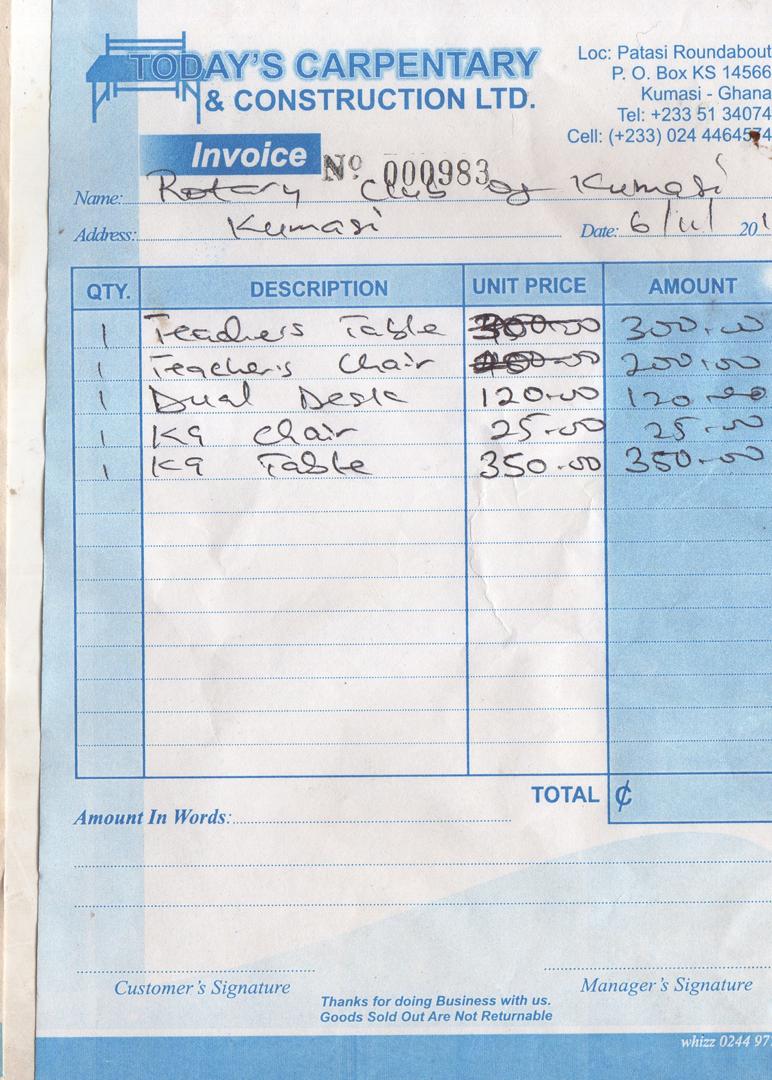 TODAY'S CARPENTARY
& CONSTRUCTION LTD.
Loc: Patasi Roundabout
P. O. Box KS 14566
Kumasi - Ghana
Tel: +233 51 34074
Cell: (+233) 024 4464574
Invoice No 000983
Name: Rotary Club of Kumasi
Address: Kumasi Date: 6/11/ 201
QTY. DESCRIPTION UNIT PRICE AMOUNT
1 Teachers Table 300.00
1 Teacher's Chair 200.00
1 Dual Desk 120.00 120.00
1 KG Chair 25.00 25.00
1 KG Table 350.00 350.00
TOTAL ₵
Amount In Words:
Customer's Signature Manager's Signature
Thanks for doing Business with us.
Goods Sold Out Are Not Returnable
whizz 0244 97